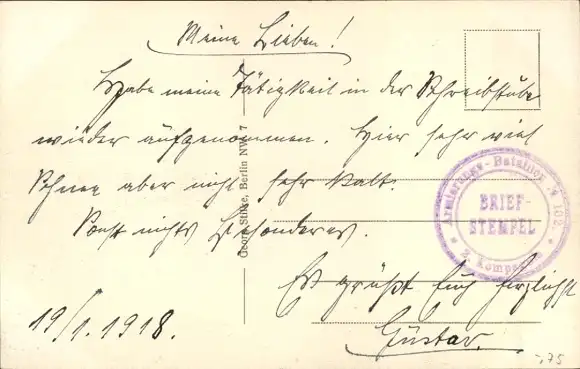 Meine Lieben!
Habe meine Tätigkeit in der Schreibstube
wieder aufgenommen. Hier sehr viel
Schnee aber nicht sehr kalt.
Sonst nichts Besonderes.
Es grüßt Euch herzlichst
Gustav.
19/1.1918.
Georg Stilke, Berlin NW. 7
Armierungs-Bataillon 102.
BRIEF-
STEMPEL
* 2. Komp. *
-,75